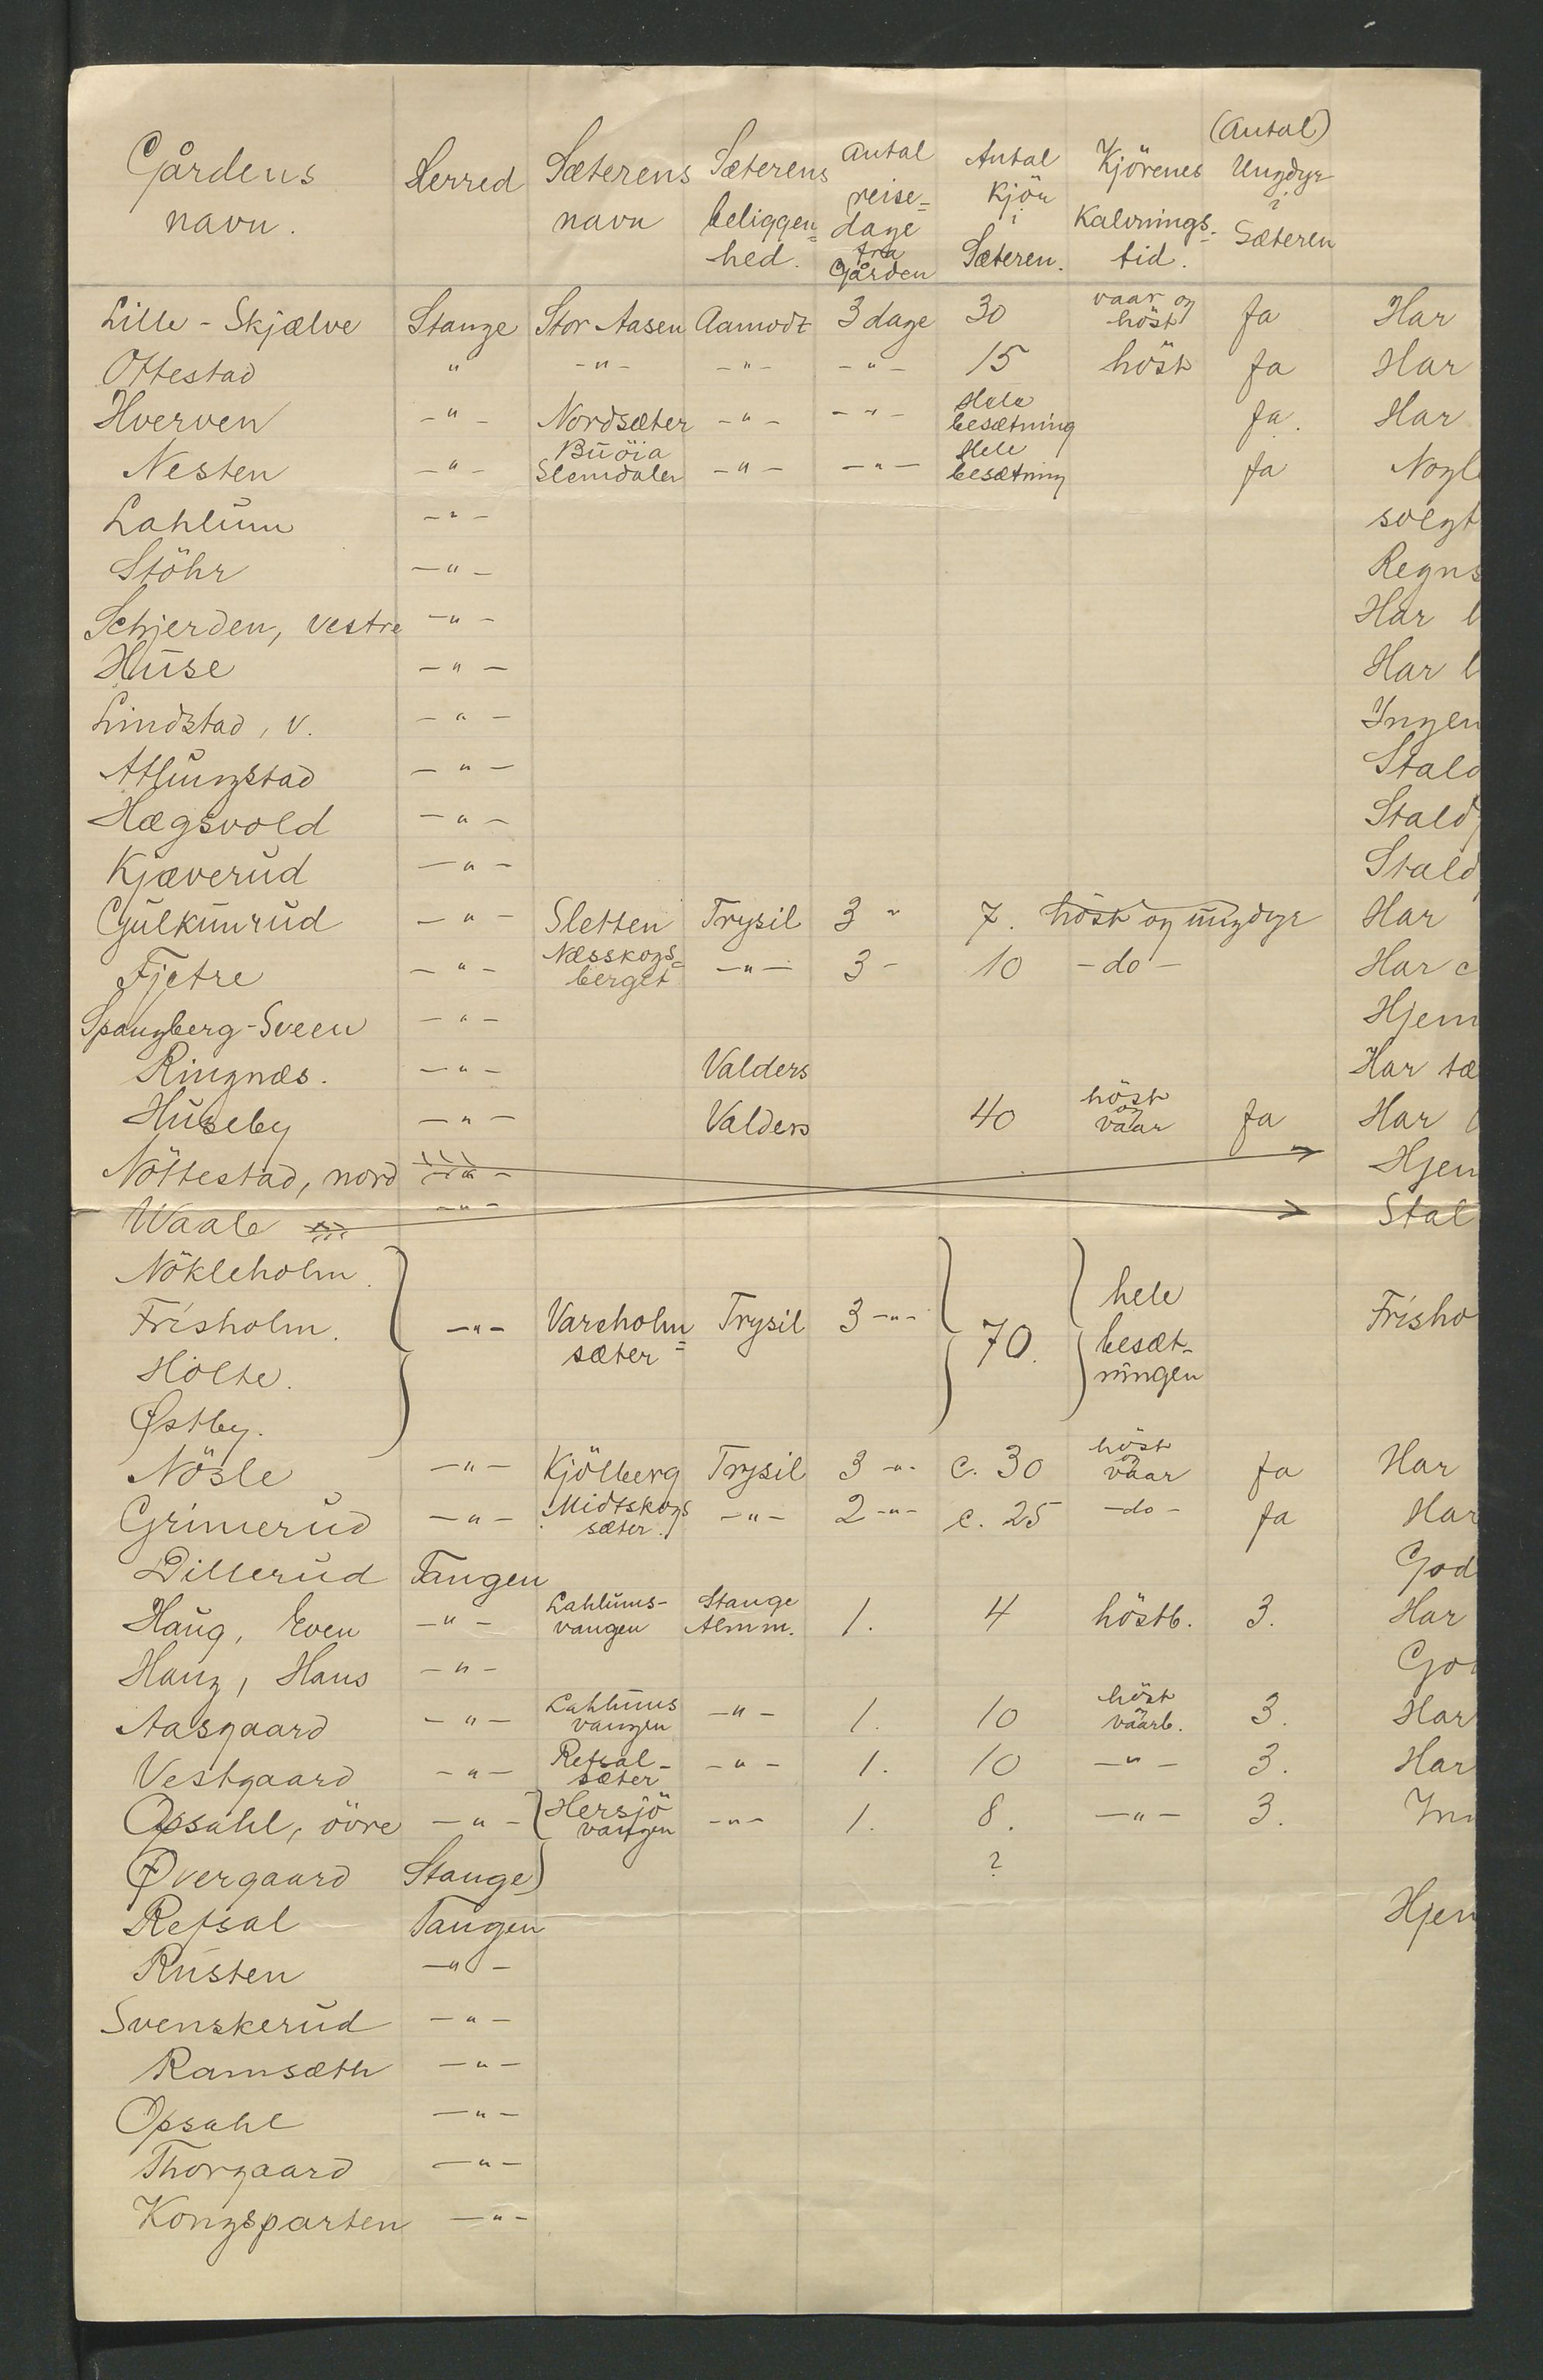 Gårdens navn. Herred Sæterens navn Sæterens beliggen= hed. Antal reise= dage fra Gården Antal Kjör i Sæteren. Kjörenes Kalvnings= tid. (Antal) Ungdyr i Sæteren
Lille - Skjælve Stange Stor Aasen Aamodt 3 dage 30 vaar og höst Ja Har
Ottestad " -"- -"- -"- 15 höst Ja Har
Hverven -"- Nordsæter -"- -"- Hele besætning Ja. Har
Nesten -"- Buöia Slemdalen -"- -"- Hele besætning Ja Nogl
Lahlum -"- solgt
Stöhr -"- Regns
Schjerden, vestre -"- Har b
Huse -"- Har b
Lindstad, v. -"- Ingen
Atlungstad -"- Stald
Hægsvold -"- Stald
Kjæverud -"- Stald
Gulkunrud -"- Sletten Trysil 3 " 7. höst og ungdyr Har
Fjetre -"- Næsskogs= berget -"- 3 - 10 - do - Har
Spangberg-Sveen -"- Hjem
Ringnæs. -"- Valders Har sæ
Huseby -"- Valders 40 höst og vaar Ja Har
Nöttestad, nord -"- Hjem
Waale -"- Stal
Nökleholm.
Frisholm. -"- Vareholm= sæter Trysil 3 -"- 70. hele besæt- ningen Frisho
Holte.
Østby.
Nösle -"- Kjölberg Trysil 3 -"- c. 30 höst og vaar Ja Har
Grimerud -"- Midtskogs sæter. -"- 2 -"- c. 25 -do- Ja Har
Dillerud Tangen God
Haug, Even -"- Lahlums- vangen Stange Almm. 1. 4 höstb. 3. Har
Haug, Hans -"- God
Aasgaard -"- Lahlums vangen -"- 1. 10 höst vaarb. 3. Har
Vestgaard -"- Refsal- sæter -"- 1. 10 -"- 3. Har
Opsahl, övre -"- Hersjö vangen -"- 1. 8. -"- 3.
Øvergaard Stange ?
Refsal Tangen Hjem
Rusten -"-
Svenskerud -"-
Ramsæth -"-
Opsahl -"-
Thorgaard -"-
Kongsparten -"-